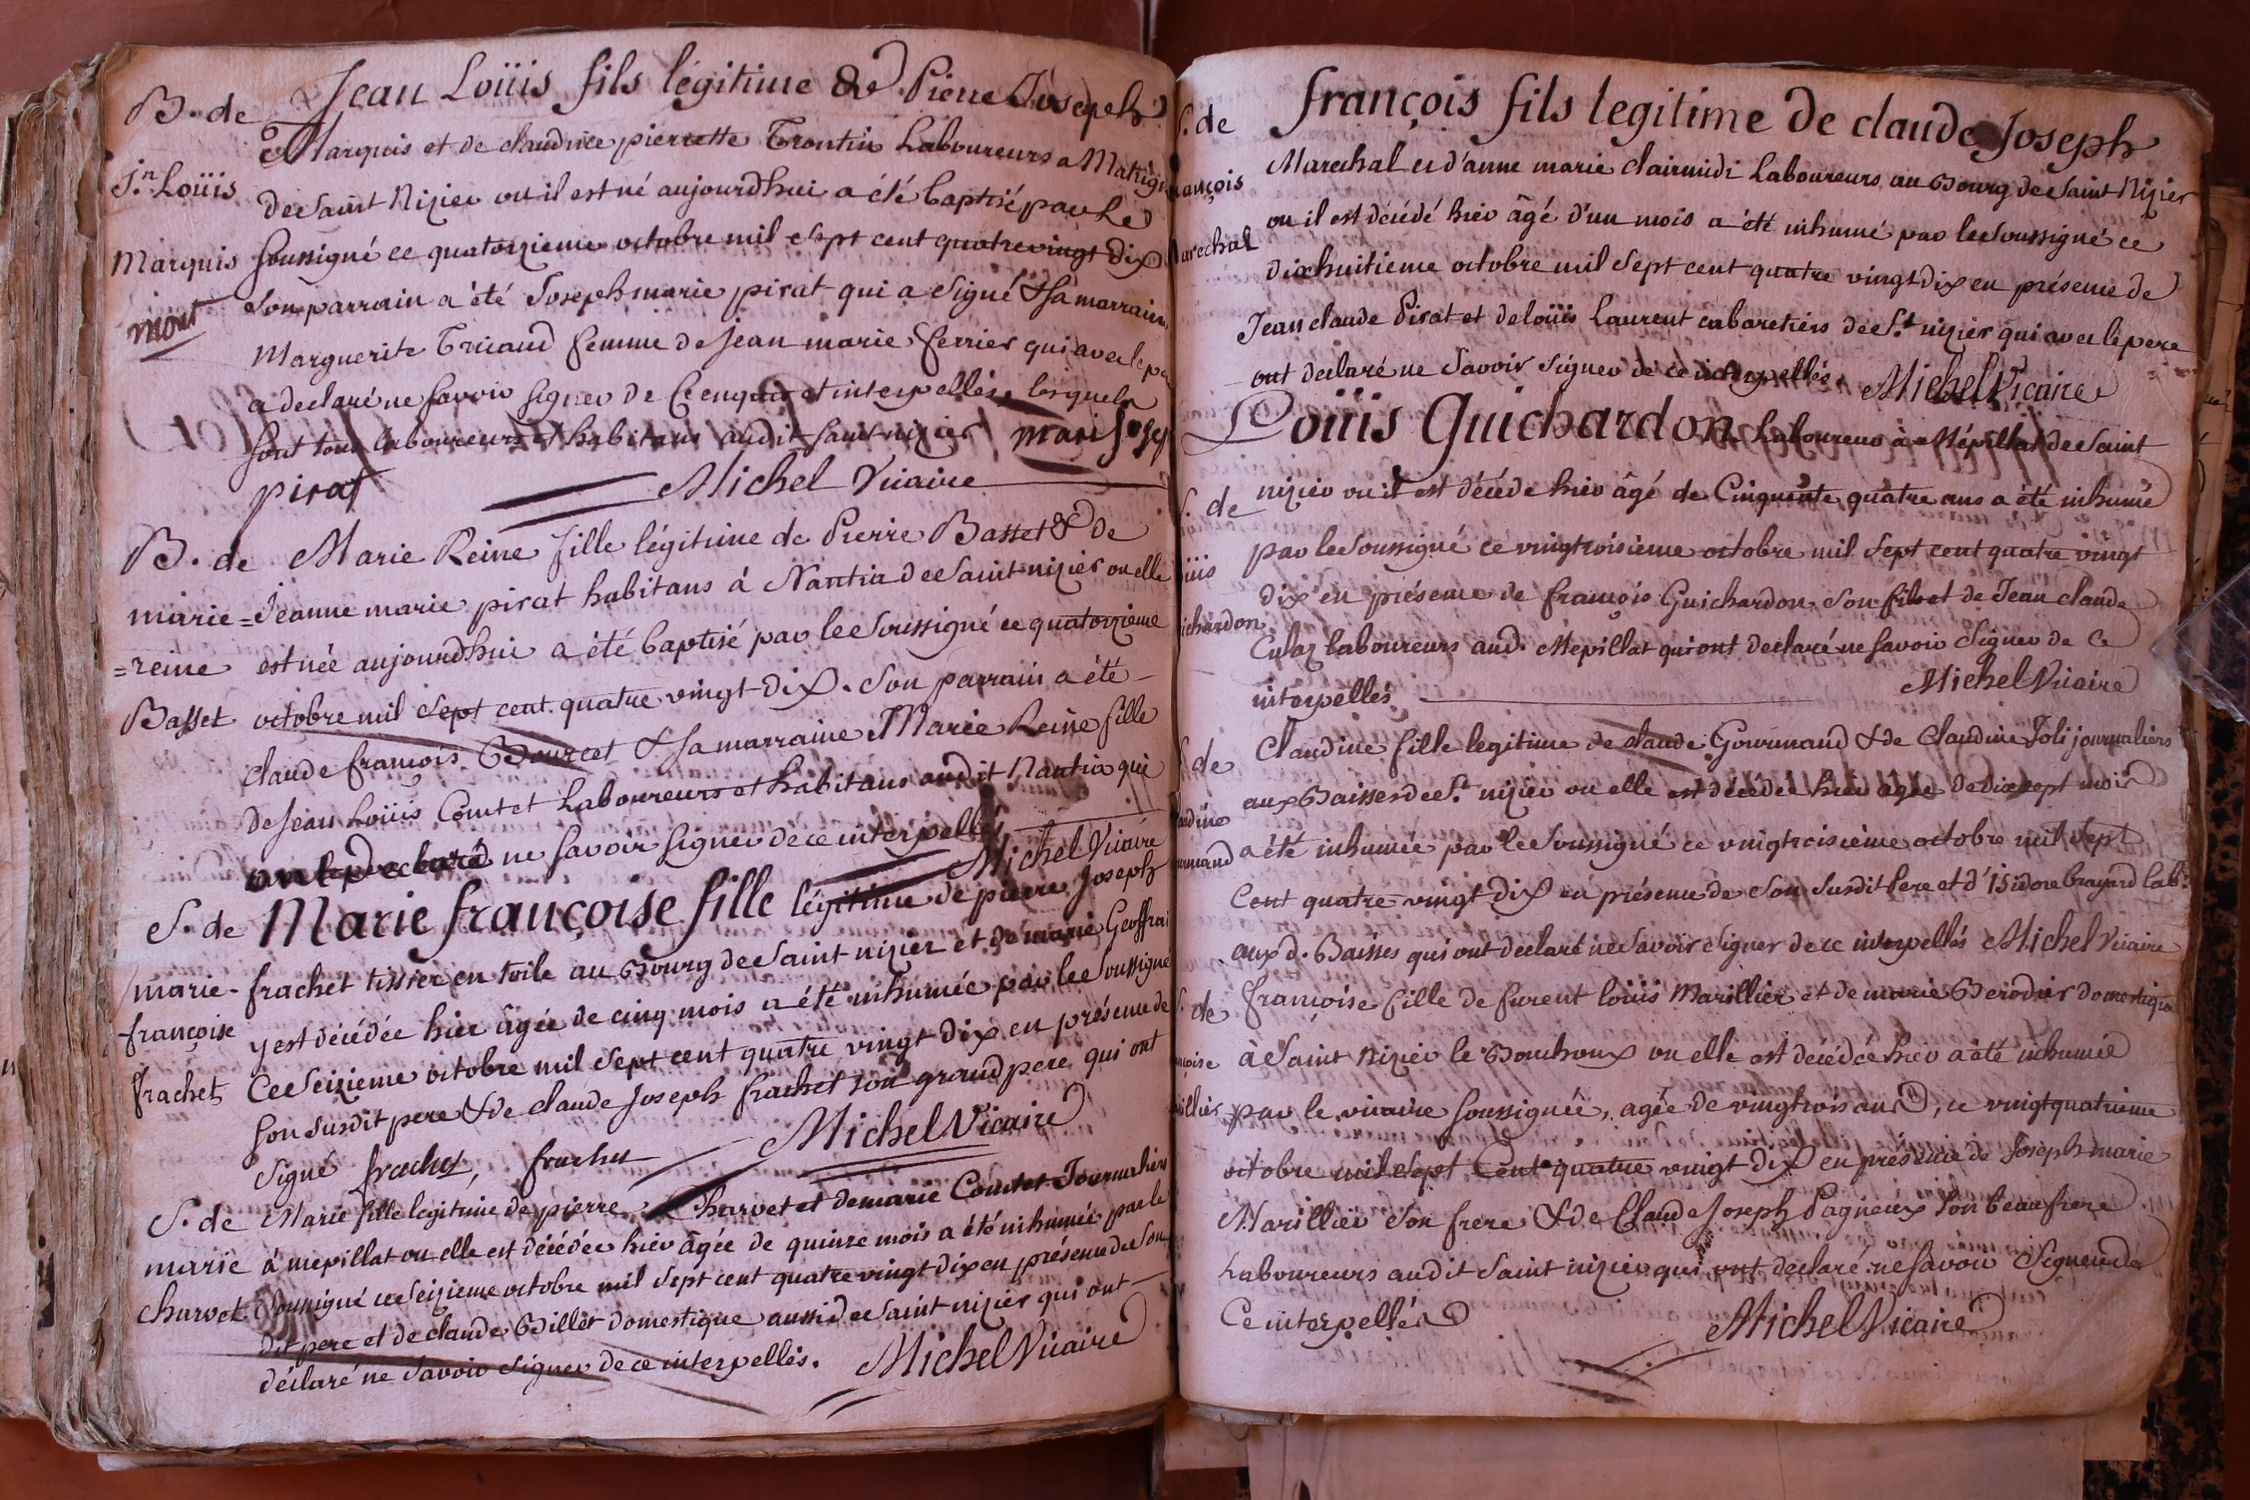 B. de
Jn. Loüis
Marquis
mort
Jean Loüis fils légitime de Pierre Joseph
Marquis et de claudine pierrette Trontin Laboureurs a
de Saint Nizier ou il est né aujourdhui a été baptisé par Le
soussigné ce quatorzieme octobre mil sept cent quatre vingt dix
son parrain a été Joseph marie pirat qui a signé & sa marraine
Marguerite Tricaud femme de Jean marie ferrier qui avec le
a declaré ne savoir signer de Ce enquis et interpellés, lesquels
sont tous laboureurs et habitans audit saint nizier mari Josep
pirat Michel Vicaire
B. de
marie=
=reine
Basset
Marie Reine fille légitime de Pierre Basset & de
Jeanne marie pirat habitans á Nantia de Saint nizier ou elle
est née aujourdhui a été baptisé par le Soussigné ce quatorzieme
octobre mil Sept cent quatre vingt-dix. son parrain a été
claude françois Bourcet & sa marraine Marie Reine fille
de Jean Loüis Comtet Laboureurs et habitans audit Nantia qui
ont declaré ne savoir signer de ce interpellés Michel Vicaire
S. de
marie-
-françoise
frachet
Marie françoise fille légitime de pierre Joseph
frachet tissier en toile au Bourg de Saint nizier et de marie Geoffrai
y est décédée hier âgée de cinq mois a été inhumée par le Soussigné
Ce Seizieme octobre mil Sept cent quatre vingt dix en présence de
son susdit pere & de claude Joseph frachet son grand pere qui ont
signé frachet, frachet Michel Vicaire
S. de
marie
charvet
Marie fille légitime de pierre Charvet et de marie Comtet Journaliers
á mepillat ou elle est décédée hier âgée de quinze mois a été inhumée par le
Soussigné ce Seizieme octobre mil Sept cent quatre vingt dix en présence de Son
dit pere et de claude Billet domestique aussi de Saint nizier qui ont
déclaré ne Savoir Signer de ce interpellés. Michel Vicaire
S. de
ançois
arechal
françois fils legitime de claude Joseph
Marechal et d'anne marie clairmidi Laboureurs au Bourg de Saint Nizier
ou il est décédé hier âgé d'un mois a été inhumé par le Soussigné ce
dixhuitieme octobre mil Sept cent quatre vingt dix en présence de
Jean claude Pirat et de loüis Laurent cabaretiers de St. nizier qui avec le pere
ont declaré ne Savoir Signer de ce interpellés Michel Vicaire
S. de
oüis
ichardon
Loüis Guichardon Laboureur á Mépillat de Saint
nizier ou il est décédé hier âgé de Cinquante quatre ans a été inhumé
par le Soussigné ce vingtroisieme octobre mil Sept cent quatre vingt
dix en présence de françois Guichardon son fils et de Jean claude
Culaz laboureurs aud. Mepillat qui ont declaré ne savoir Signer de Ce
interpellés Michel Vicaire
S. de
audine
urmand
Claudine fille legitime de claude Gourmand & de Claudine Joli journaliers
aux Baisses de St. nizier ou elle est décédée hier âgée de dixsept mois
a été inhumée par le Soussigné ce vingtroisieme octobre mil Sept
Cent quatre vingt dix en présence de Son Susdit Pere et d'isidore brayard lab.r
aux d. Baisses qui ont declaré ne Savoir signer de ce interpellés Michel Vicaire
S. de
nçoise
illier
françoise fille de furent loüis Marillier et de marie Berodier domestique
à Saint Nizier le Bouchoux ou elle est décédée hier a été inhumée
par le vicaire soussignée, agée de vingtrois ans, ce vingtquatrieme
octobre mil Sept Cent quatre vingt dix en présence de Joseph marie
Marillier Son frere & de Claude Joseph Pagneux Son beau frere
Laboureurs audit Saint nizier qui ont declaré ne savoir Signer de
Ce interpellés Michel Vicaire